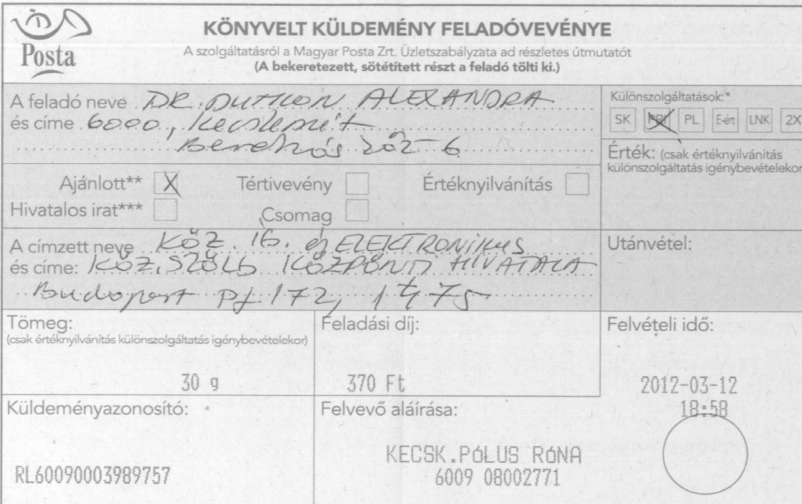 Posta
KÖNYVELT KÜLDEMÉNY FELADÓVEVÉNYE
A szolgáltatásról a Magyar Posta Zrt. Üzletszabályzata ad részletes útmutatót
(A bekeretezett, sötétített részt a feladó tölti ki.)
A feladó neve DR. ALEXANDRA
és címe 6000, Kecskemét
köz 6
Különszolgáltatások:*
SK PRI PL E-ért LNK 2X
Érték: (csak értéknyilvánítás
különszolgáltatás igénybevételekor)
Ajánlott** X Tértivevény Értéknyilvánítás
Hivatalos irat*** Csomag
A címzett neve KÖZ. IG. és ELEKTRONIKUS
és címe: KÖZ. SZOLG KÖZPONTI HIVATALA
Budapest Pf 172, 1475
Utánvétel:
Tömeg:
(csak értéknyilvánítás különszolgáltatás igénybevételekor)
30 g
Feladási díj:
370 Ft
Felvételi idő:
2012-03-12
18:58
Küldeményazonosító:
RL60090003989757
Felvevő aláírása:
KECSK.PÓLUS RÓNA
6009 08002771